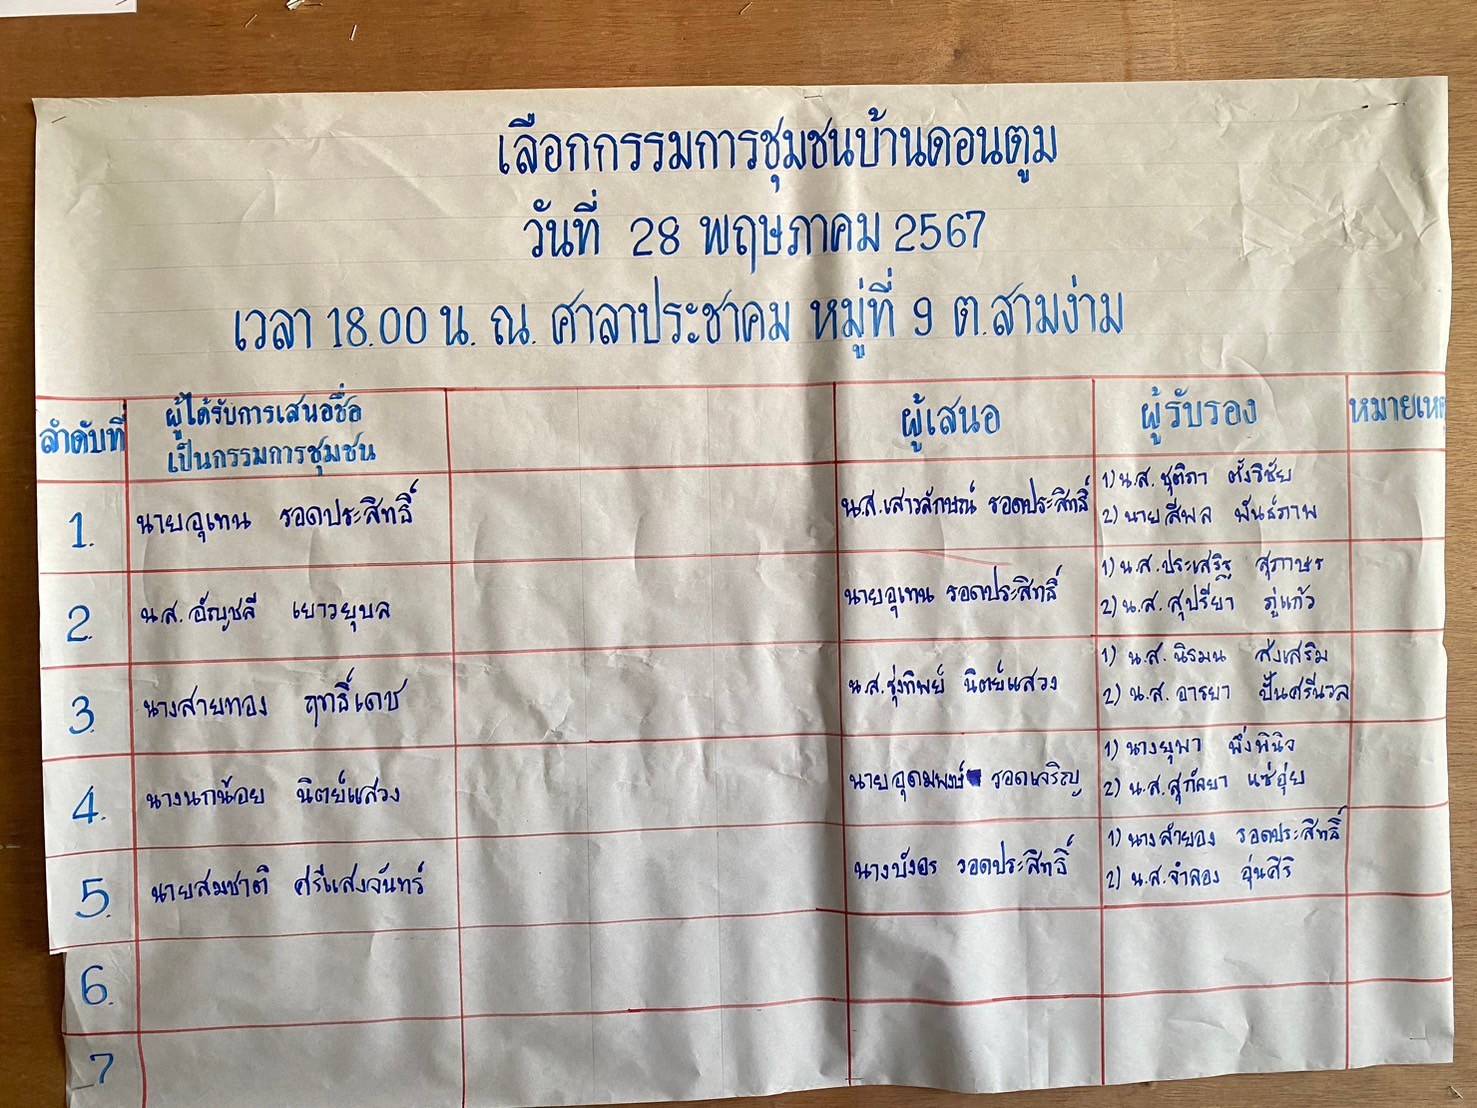 เลือกกรรมการชุมชนบ้านดอนตูม
วันที่ 28 พฤษภาคม 2567
เวลา 18.00 น. ณ. ศาลาประชาคม หมู่ที่ 9 ต.สามง่าม
ลำดับที่ ผู้ได้รับการเสนอชื่อ ผู้เสนอ ผู้รับรอง หมายเหตุ
เป็นกรรมการชุมชน
1. นายอุเทน รอดประสิทธิ์ น.ส.เสาวลักษณ์ รอดประสิทธิ์ 1) น.ส. ชุติภา ตั้งวิชัย
2) นายสีพล พันธ์ภาพ
2. น.ส. อัญชลี เยาวยุบล นายอุเทน รอดประสิทธิ์ 1) น.ส.ประเสริฐ สุภาษร
2) น.ส. สุปรียา ภู่แก้ว
3. นางสายทอง ฤทธิ์เดช น.ส.รุ่งทิพย์ นิตย์แสวง 1) น.ส. นิรมน ส่งเสริม
2) น.ส. อารยา ปั้นศรีนวล
4. นางนกน้อย นิตย์แสวง นายอุดมพงษ์ รอดเจริญ 1) นางยุพา พึ่งพินิจ
2) น.ส.สุกัลยา แซ่อุ่ย
5. นายสมชาติ ศรีแสงจันทร์ นางบังอร รอดประสิทธิ์ 1) นางสำยอง รอดประสิทธิ์
2) น.ส.จำลอง อุ่นศิริ
6.
7